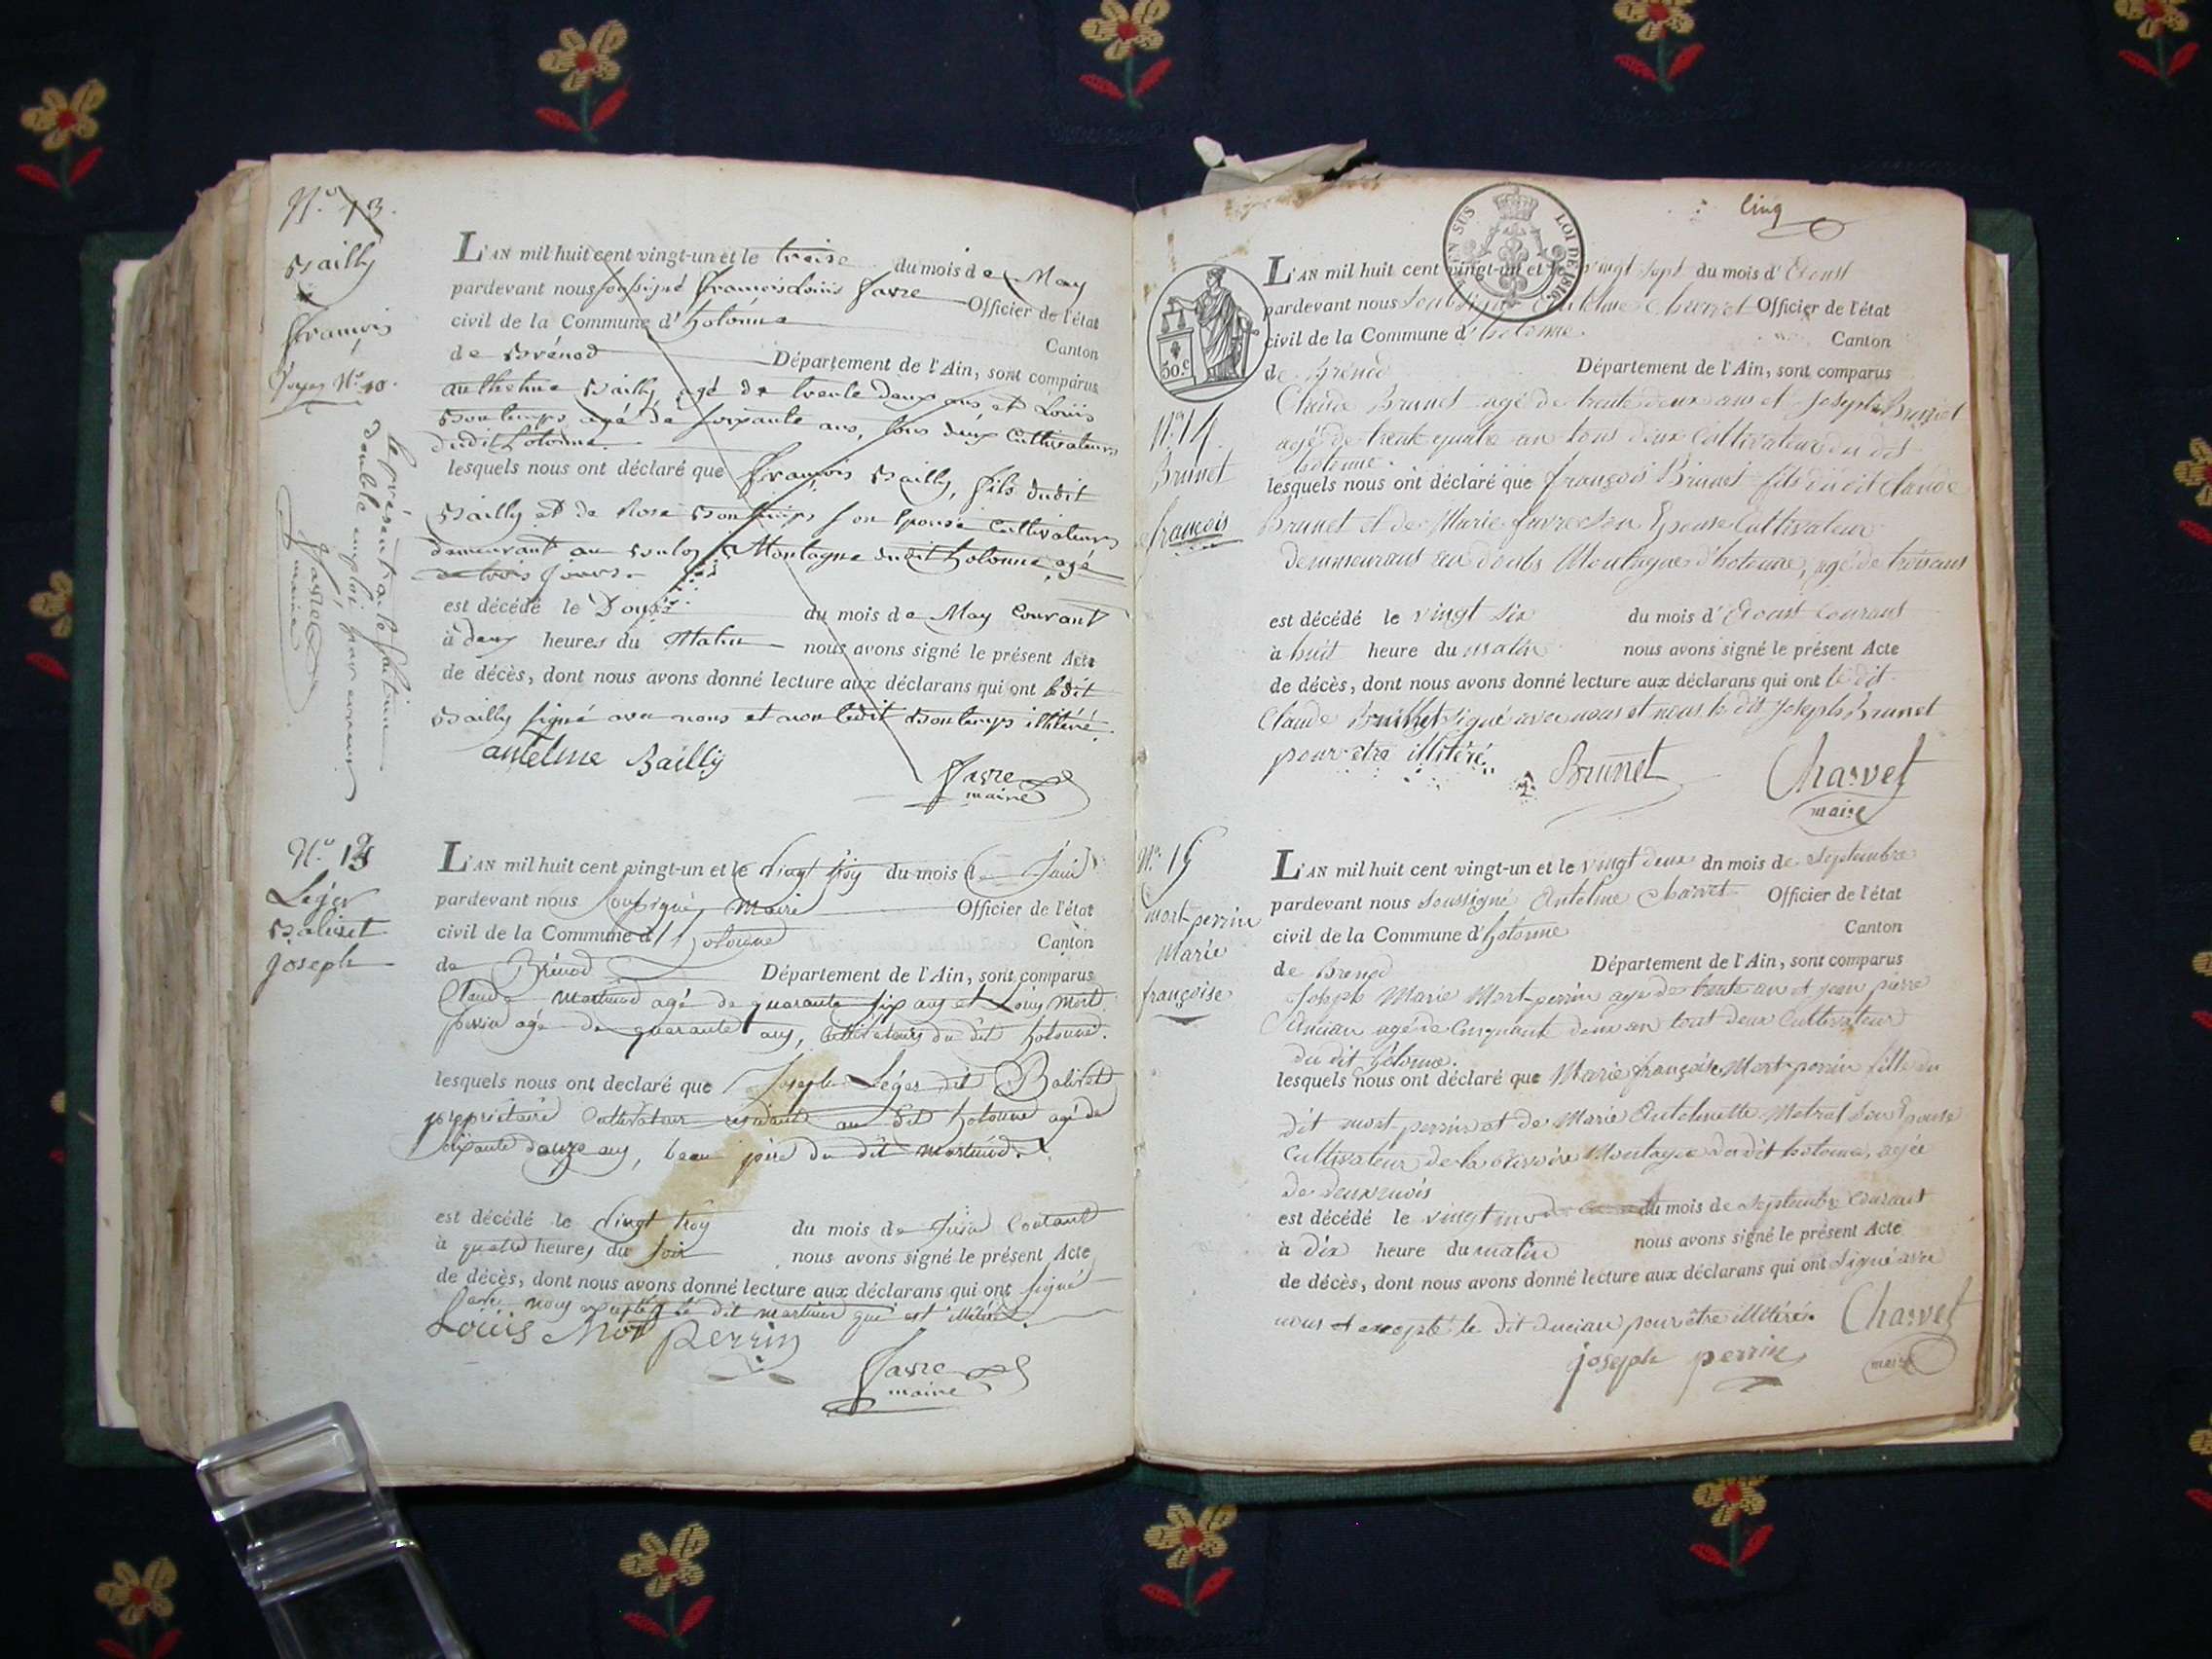 N.º 13.
Bailly
François
Voyez N.º 10.
le présent acte fait un
double emploi, par erreur
Favre
maire
L'AN mil huit cent vingt-un et le treise du mois de May
pardevant nous soussigné François Louis Favre Officier de l'état
civil de la Commune d'hotonne Canton
de Brénod Département de l'Ain, sont comparus
anthelme Bailly agé de trente deux ans, et Louis
Bontemps agé de soixante ans, tous deux Cultivateurs
dudit hotonne
lesquels nous ont déclaré que François Bailly, fils dudit
Bailly et de Rose Bontemps son Epouse Cultivateurs
demeurant au Montagne dudit hotonne agé
de trois Jours.
est décédé le Douze du mois de May Courant
à deux heures du Matin nous avons signé le présent Acte
de décès, dont nous avons donné lecture aux déclarans qui ont ledit
Bailly signé avec nous et non ledit Bontemps illitéré.
antelme Bailly
Favre
maire
N.º 13
Léger
Balivet
joseph
L'AN mil huit cent vingt-un et le Vingt troy du mois de Juin
pardevant nous Soussigné Maire Officier de l'état
civil de la Commune d'hotonne Canton
de Brénod Département de l'Ain, sont comparus
Claude Martinod agé de quarante six ans et Louy Mort
perrin agé de quarante ans, cultivateurs du dit hotonne.
lesquels nous ont declaré que Joseph Léger dit Balivet
propriétaire Cultivateur résidant au dit hotonne agé de
soixante douze ans, beau père du dit Martinod.
est décédé le Vingt troy du mois de Juin Courant
à quatre heures du soir nous avons signé le présent Acte
de décès, dont nous avons donné lecture aux déclarans qui ont signé
avec nous excepté le dit martinod qui est illitéré.
Louis Mort perrin
Favre
maire
cinq
TIMBRE EN SUS LOI DE 1816.
50.c
N.º 14.
Brunet
françois
L'AN mil huit cent vingt-un et le vingt sept du mois d'Aoust
pardevant nous Soussigné Antelme Charvet Officier de l'état
civil de la Commune d'hotonne Canton
de Brénod Département de l'Ain, sont comparus
Claude Brunet agé de trente deux ans et Joseph Brunet
agé de trente quatre ans tous deux Cultivateurs du dit
hotonne.
lesquels nous ont déclaré que françois Brunet fils du dit Claude
Brunet et de Marie favre son Epouse Cultivateur
demmeurant au Montagne d'hotonne, agé de trois ans
est décédé le vingt six du mois d'Aoust Courant
à huit heure du matin nous avons signé le présent Acte
de décès, dont nous avons donné lecture aux déclarans qui ont le dit
Claude Brunet signé avec nous et nous le dit Joseph Brunet
pour etre illitéré
Brunet
Charvet
maire
N.º 15
mort-perrin
Marie
françoise
L'AN mil huit cent vingt-un et le vingt deux du mois de Septembre
pardevant nous soussigné Antelme Charvet Officier de l'état
civil de la Commune d'hotonne Canton
de Brenod Département de l'Ain, sont comparus
Joseph Marie Mort-perrin agé de trente an et jean pierre
Ancian agé de Cinquante deux an tout deux Cultivateur
du dit hotonne.
lesquels nous ont déclaré que Marie françoise Mort-perrin fille du
dit mort-perrin et de Marie Antelmette Metral son Epouse
Cultivateur de la Montagne du dit hotonne, agée
de deux mois
est décédé le vingt du mois de Septembre Courant
à dix heure du matin nous avons signé le présent Acte
de décès, dont nous avons donné lecture aux déclarans qui ont signé avec
nous et excepté le dit Ancian pour être illitéré.
Charvet
maire
joseph perrin